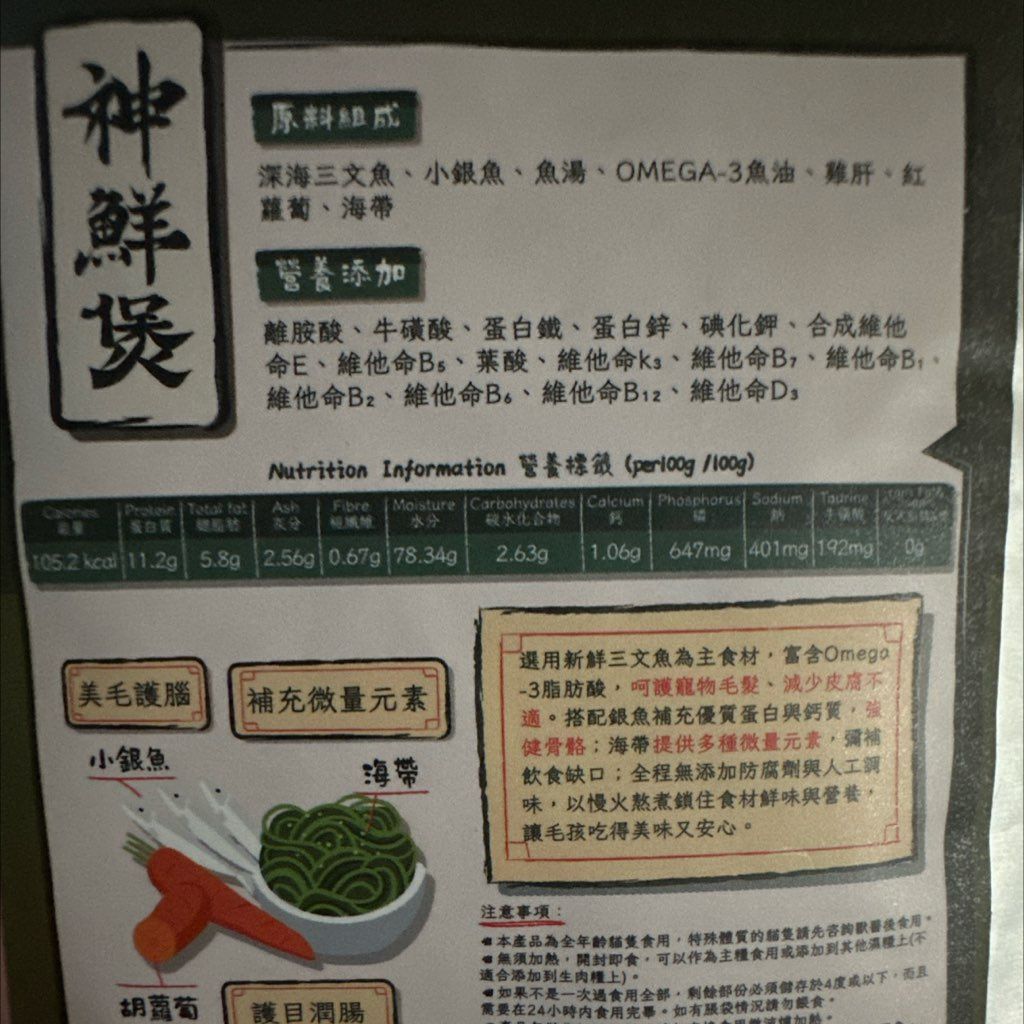 神鮮煲
原料組成
深海三文魚、小銀魚、魚湯、OMEGA-3魚油、雞肝、紅
蘿蔔、海帶
營養添加
離胺酸、牛磺酸、蛋白鐵、蛋白鋅、碘化鉀、合成維他
命E、維他命B₅、葉酸、維他命k₃、維他命B₇、維他命B₁、
維他命B₂、維他命B₆、維他命B₁₂、維他命D₃
Nutrition Information 營養標籤 (per100g /100g)
Calories Protein Total fat Ash Fibre Moisture Carbohydrates Calcium Phosphorus Sodium Taurine
能量 蛋白質 總脂肪 灰分 粗纖維 水分 碳水化合物 鈣 磷 鈉 牛磺酸
105.2 kcal 11.2g 5.8g 2.56g 0.67g 78.34g 2.63g 1.06g 647mg 401mg 192mg 0g
美毛護腦
補充微量元素
小銀魚
海帶
胡蘿蔔
護目潤腸
選用新鮮三文魚為主食材，富含Omega
-3脂肪酸，呵護寵物毛髮、減少皮膚不
適。搭配銀魚補充優質蛋白與鈣質，強
健骨骼；海帶提供多種微量元素，彌補
飲食缺口；全程無添加防腐劑與人工調
味，以慢火熬煮鎖住食材鮮味與營養，
讓毛孩吃得美味又安心。
注意事項：
本產品為全年齡貓隻食用，特殊體質的貓隻請先咨詢獸醫後食用。
無須加熱，開封即食，可以作為主糧食用或添加到其他濕糧上(不
適合添加到生肉糧上)。
如果不是一次過食用全部，剩餘部份必須儲存於4度或以下，而且
需要在24小時內食用完畢。如有脹袋情況請勿餵食。